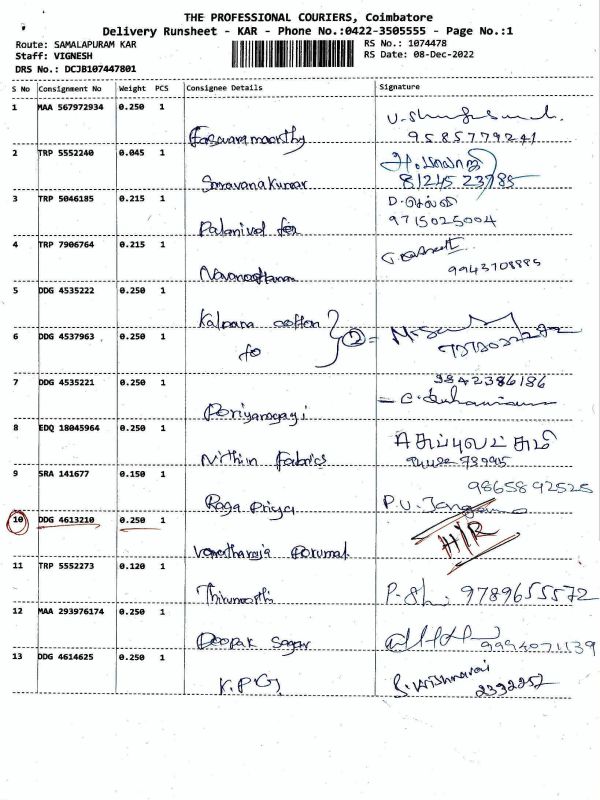 THE PROFESSIONAL COURIERS, Coimbatore
Delivery Runsheet - KAR - Phone No.:0422-3505555 - Page No.:1
Route: SAMALAPURAM KAR
RS No.: 1074478
Staff: VIGNESH
RS Date: 08-Dec-2022
DRS No.: DCJB107447801
S No Consignment No Weight PCS Consignee Details Signature
1 MAA 567972934 0.250 1
9585779241
2 TRP 5552240 0.045 1
Saravanakumar 81245 23785
3 TRP 5046185 0.215 1 D. செல்வி
Palanivel 9715025004
4 TRP 7906764 0.215 1
9943708885
5 DDG 4535222 0.250 1
Kalpana cotton
6 DDG 4537963 0.250 1 2 =
7 DDG 4535221 0.250 1 9842386186
Periyanayagi
8 EDQ 18045964 0.250 1
Nithin Fabrics
9 SRA 141677 0.150 1 9865892525
Raga Priya P.V.
10 DDG 4613210 0.250 1 H/R
Varatharaja Perumal
11 TRP 5552273 0.120 1
Thirumoorthi 9789655572
12 MAA 293976174 0.250 1
Deepak Sagar 9994071139
13 DDG 4614625 0.250 1
K.P.G 2332257